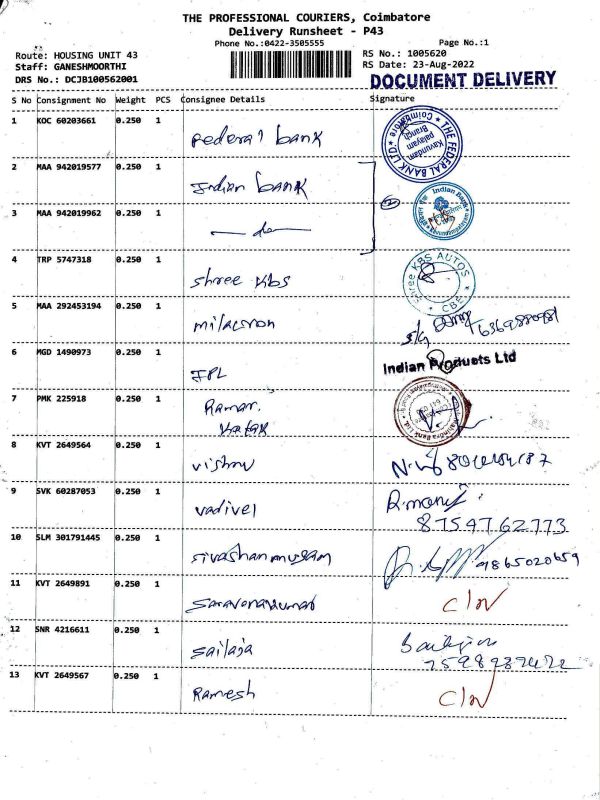 THE PROFESSIONAL COURIERS, Coimbatore
Delivery Runsheet - P43
Phone No.:0422-3505555
Page No.:1
Route: HOUSING UNIT 43
RS No.: 1005620
Staff: GANESHMOORTHI
RS Date: 23-Aug-2022
DRS No.: DCJB100562001
DOCUMENT DELIVERY
S No Consignment No Weight PCS Consignee Details Signature
1 KOC 60203661 0.250 1 Federal bank
THE FEDERAL BANK LTD. Coimbatore Kavundam palayam Branch
2 MAA 942019577 0.250 1 Indian bank
Indian Bank
3 MAA 942019962 0.250 1 — do —
4 TRP 5747318 0.250 1 Shree Kbs
Shree KBS AUTOS CBE
5 MAA 292453194 0.250 1 milacron
6 MGD 1490973 0.250 1 IPL
Indian Products Ltd
7 PMK 225918 0.250 1 Raman.
Kotak
Mahindra Bank Ltd.
8 KVT 2649564 0.250 1 vishnu
9 SVK 60287053 0.250 1 vadivel R.mani
8754762773
10 SLM 301791445 0.250 1 sivashanmugam 9865020659
11 KVT 2649891 0.250 1 Saravanakumar
12 SNR 4216611 0.250 1 Sailaja
13 KVT 2649567 0.250 1 Ramesh